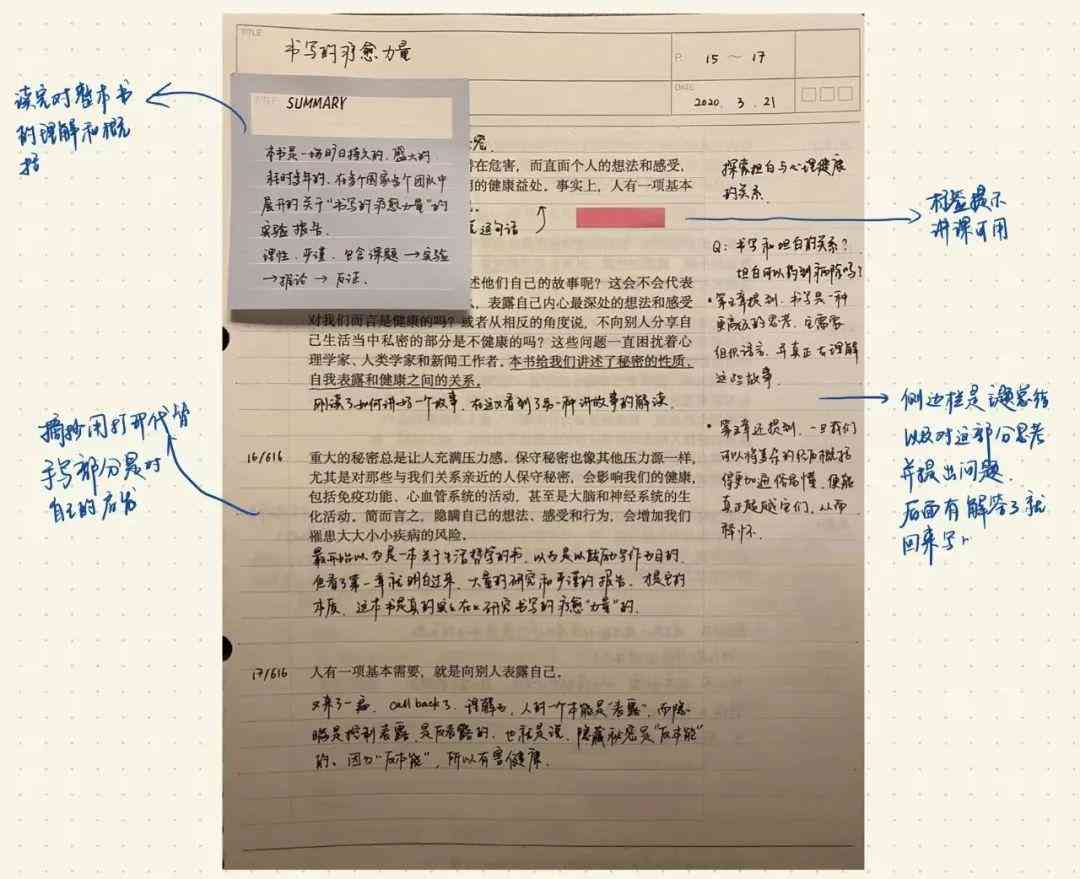 TITLE
书写的疗愈力量
P. 15 ~ 17
DATE
2020. 3. 21
读完对整本书
的理解和概
括
TITLE
SUMMARY
本书是一场旷日持久的、盛大的、
耗时多年的、在多个国家多个团队中
展开的关于“书写的疗愈力量”的
实验报告。
理性、严谨、包含课题→实验
→推论→反证。
存在危害，而直面个人的想法和感受，
的健康益处。事实上，人有一项基本
这句话
述他们自己的故事呢？这会不会代表
，表露自己内心最深处的想法和感受
对我们而言是健康的吗？或者从相反的角度说，不向别人分享自
己生活当中私密的部分是不健康的吗？这些问题一直困扰着心
理学家、人类学家和新闻工作者。本书给我们讲述了秘密的性质、
自我表露和健康之间的关系。
刚读了如何讲好一个故事，在这又看到了另一种讲故事的解读。
16/616
重大的秘密总是让人充满压力感。保守秘密也像其他压力源一样，
尤其是对那些与我们关系亲近的人保守秘密，会影响我们的健康，
包括免疫功能、心血管系统的活动，甚至是大脑和神经系统的生
化活动。简而言之，隐瞒自己的想法、感受和行为，会增加我们
罹患大大小小疾病的风险。
最开始以为是一本关于生活哲学的书，以为是以鼓励写作为目的。
但看了第一章就明白过来，大量的研究和严谨的报告，才是它的
本质。这本书是真的在研究书写的疗愈“力量”的。
17/616
人有一项基本需要，就是向别人表露自己。
又来了一遍，call back了。理解为，人的一个本能是“表露”，而隐
瞒是控制表露，是反表露的。也就是说，隐藏秘密是“反本能”
的。因为“反本能”，所以有害健康。
探索坦白与心理健康
的关系。
Q：书写和坦白的关系？
坦白可以的到祛除吗？
•第三章提到，书写是一种
更高级的思考，它需要
组织语言，并真正去理解
这些故事。
•第三章还提到，一旦我们
可以将复杂的经历概括
得更加通俗易懂，便能
真正超越它们，从而
释怀。
标签提示
讲课可用
侧边栏是该章节
以及对这部分思考
并提出问题。
后面有解答了就
回来写。
摘抄用打印代替
手写部分是对
自己的启发